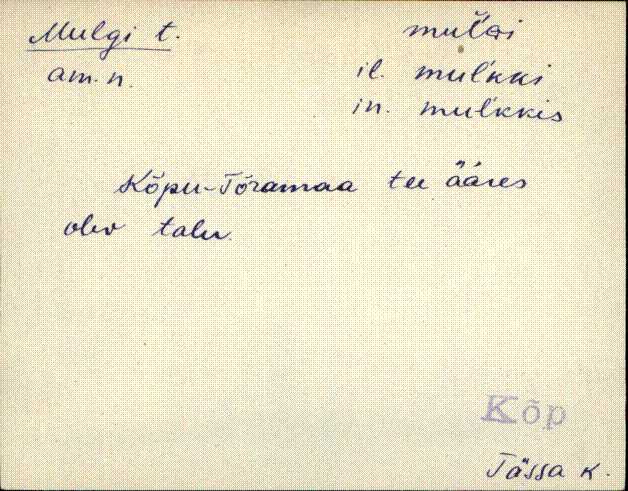 Mulgi t.
am. n.
mul̆Gi
il. mul'kki
in. mul'kkis
Kõpu-Tõramaa tee ääres
olev talu.
Kõp
Tässa k.